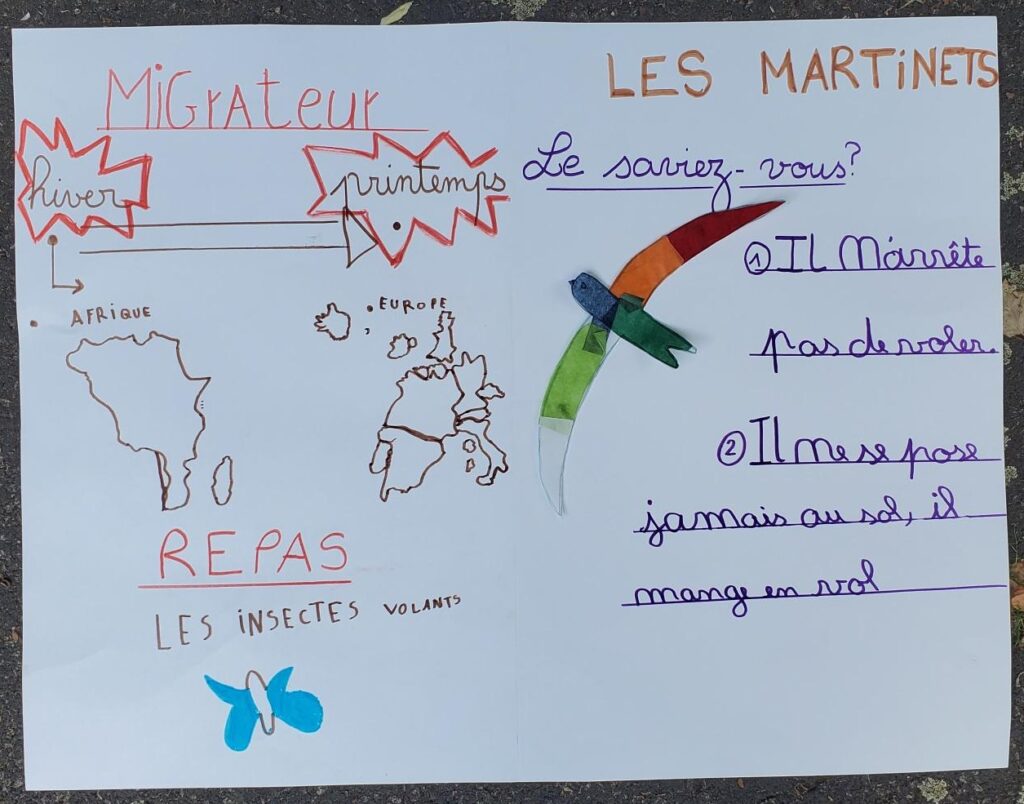 MiGrateur
hiver
printemps
AFRIQUE
EUROPE
REPAS
LES INSECTES VOLANTS
LES MARTiNETS
Le saviez-vous?
① Il N'arrête
pas de voler.
② Il ne se pose
jamais au sol, il
mange en vol